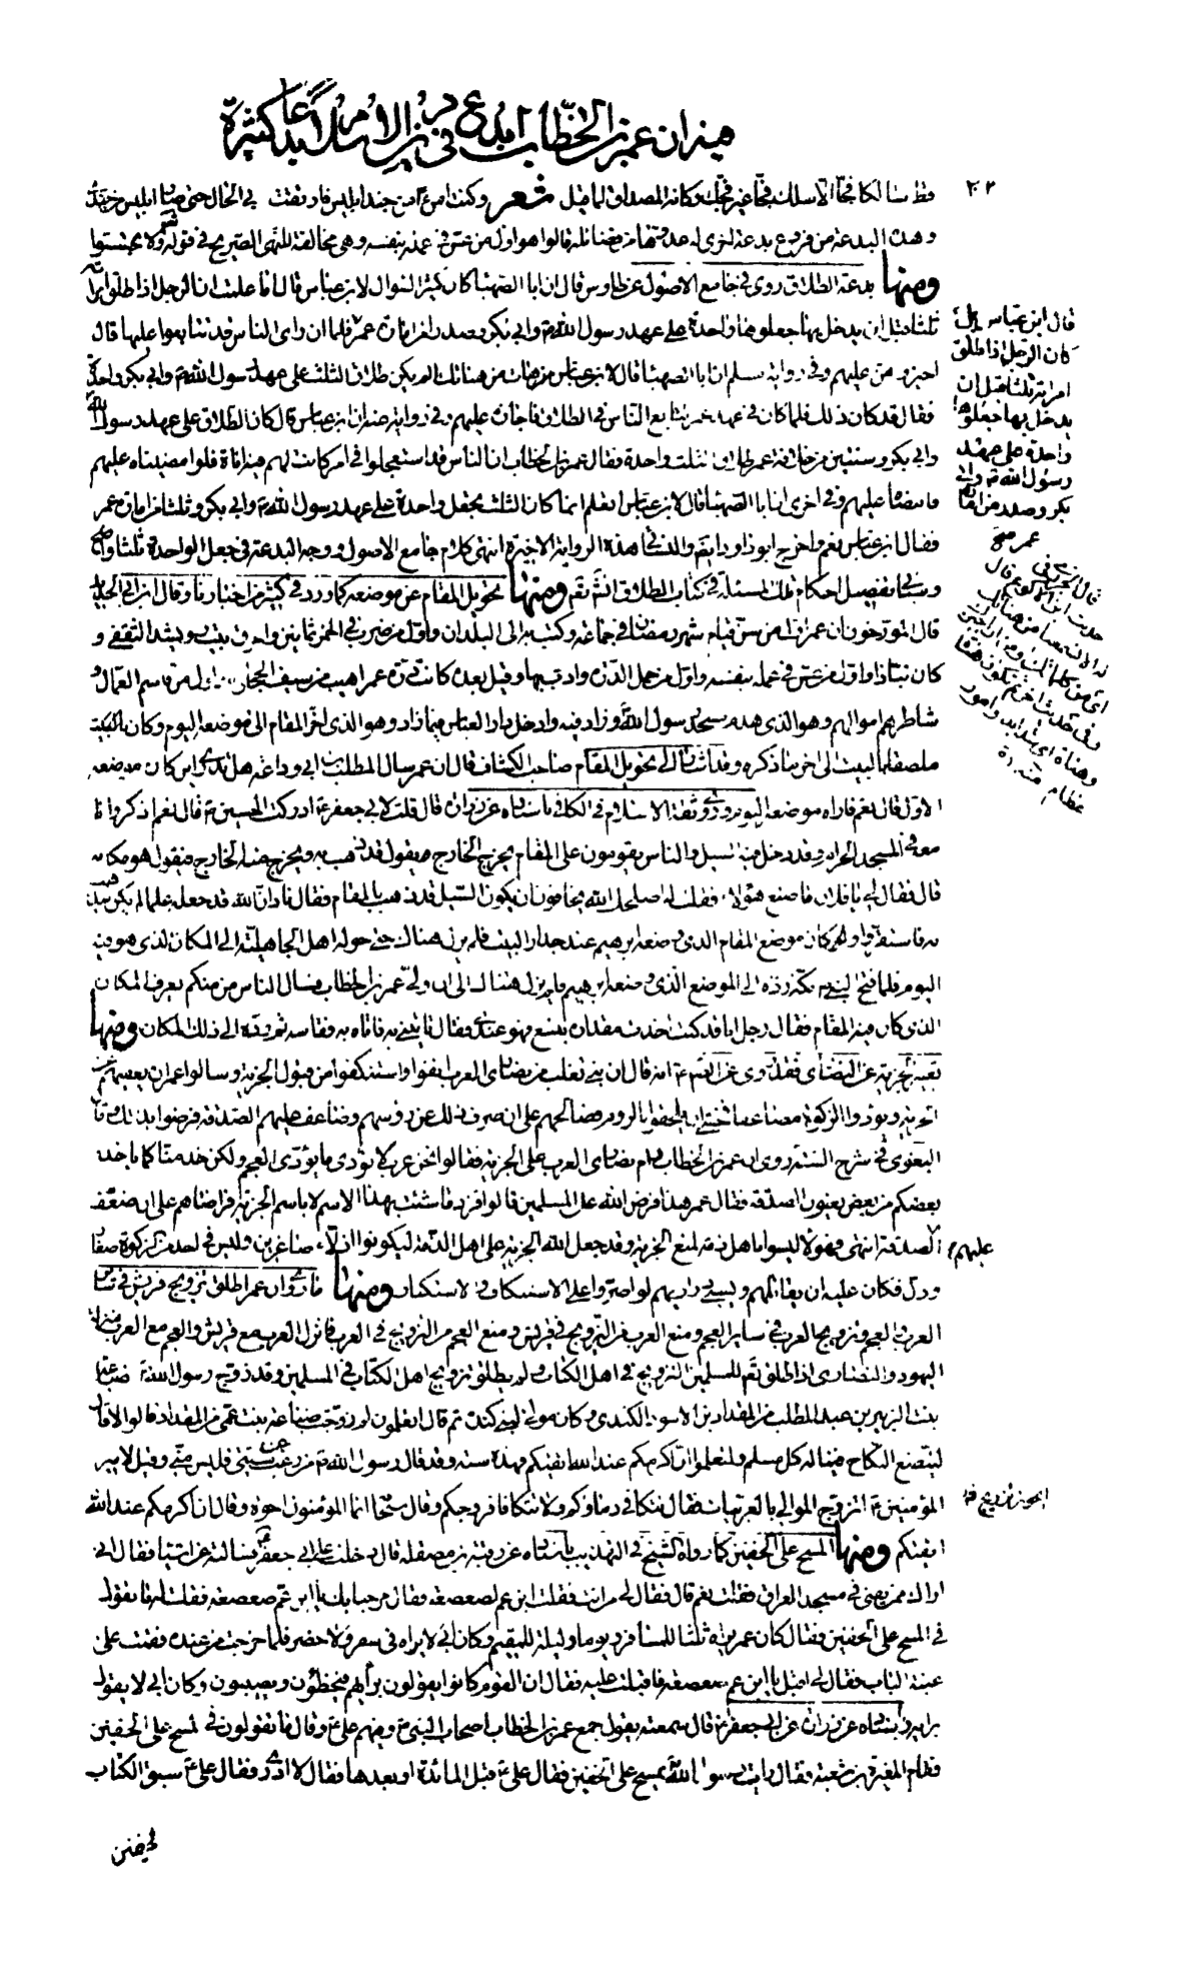 في ان عمر بن الخطاب ابدع في دين الاسلام بدعا كثيرة
٣٠٢
قط سالكا فجا الا سلك فجا غير فجك وكانه المصداق لما قيل شعر وكنت امرء من جند ابليس فارتقت بي الحال حتى صار ابليس من جندي
وهذه البدعة من فروع بدعة اخرى له عدوها من فضائله قالوا هو اول من عس في عمله بنفسه وهي مخالفة للنهي الصريح في قوله تعالى ولا تجسسوا
ومنها بدعة الطلاق روى في جامع الاصول عن طاوس قال ان ابا الصهباء كان كثير السؤال لابن عباس قال اما علمت ان الرجل اذا طلق امراته
ثلثا قبل ان يدخل بها جعلوها واحدة على عهد رسول الله ص وابي بكر وصدرا من امارة عمر فلما ان راى الناس قد تتابعوا عليها قال
اجيزوهن عليهم وفي رواية مسلم ان ابا الصهباء قال لابن عباس هات من هناتك الم يكن طلاق الثلث على عهد رسول الله ص وابي بكر واحدة
فقال قد كان ذلك فلما كان في عهد عمر تتابع الناس في الطلاق فاجازه عليهم وفي رواية عنه ان ابن عباس قال كان الطلاق على عهد رسول الله
وابي بكر وسنتين من خلافة عمر طلاق الثلث واحدة فقال عمر بن الخطاب ان الناس قد استعجلوا في امر كانت لهم فيه اناة فلو امضيناه عليهم
فامضاه عليهم وفي اخرى ان ابا الصهباء قال لابن عباس اتعلم انما كان الثلث يجعل واحدة على عهد رسول الله ص وابي بكر وثلثا من امارة عمر
فقال ابن عباس نعم واخرج ابو داود ايضا والنسائي هذه الرواية الاخيرة انتهى كلام جامع الاصول ووجه البدعة في جعل الواحدة ثلثا واضح
وسياتي تفصيل احكام تلك المسئلة في كتاب الطلاق انشاء الله تعالى ومنها تحويل المقام عن موضعه كما ورد في كثير من اخبارنا وقال ابن ابي الحديد
قال المورخون ان عمر اول من سن قيام شهر رمضان في جماعة وكتب به الى البلدان واول من ضرب في الخمر ثمانين واحرق بيت رويشد الثقفي و
كان نباذا واول من عس في عمله بنفسه واول من حمل الدرة وادب بها وقيل بعده كانت درة عمر اهيب من سيف الحجاج واول من قاسم العمال و
شاطرهم اموالهم وهو الذي هدم مسجد رسول الله ص وزاد فيه وادخل دار العباس فيما زاد وهو الذي اخر المقام الى موضعه اليوم وكان
ملصقا بالبيت الى اخر ما ذكره وقد اشار الى تحويل المقام صاحب الكشاف قال ان عمر سال المطلب بن ابي وداعة هل تدري اين كان موضعه
الاول قال نعم فاراه موضعه اليوم وروى ثقة الاسلام في الكافي باسناده عن زرارة قال قلت لابي جعفر ع ادركت الحسين ع قال نعم اذكر وانا
معه في المسجد الحرام وقد دخل فيه السيل والناس يقومون على المقام يخرج الخارج فيقول قد ذهب به ويخرج منه الخارج فيقول هو مكانه
قال فقال لي يا فلان ما صنع هؤلاء فقلت له اصلحك الله يخافون ان يكون السيل قد ذهب بالمقام فقال ناد ان الله قد جعله علما لم يكن ليذهب
به فاستقروا وكان موضع المقام الذي وضعه ابرهيم عند جدار البيت فلم يزل هناك حتى حوله اهل الجاهلية الى المكان الذي هو فيه
اليوم فلما فتح النبي ص مكة رده الى الموضع الذي وضعه ابرهيم فلم يزل هناك الى ان ولي عمر بن الخطاب فسال الناس من منكم يعرف المكان
الذي كان فيه المقام فقال رجل انا قد كنت اخذت مقداره بنسع فهو عندي فقال ائتني به فاتاه به فقاسه ثم رده الى ذلك المكان ومنها
تغييره الجزية عن النصارى فقد روى عن الصادق ع انه قال ان بني تغلب من نصارى العرب انفوا واستنكفوا من قبول الجزية وسالوا عمر ان يعفيهم عن
الجزية ويؤدوا الزكوة مضاعفا فخشي ان يلحقوا بالروم فصالحهم على ان صرف ذلك عن رؤسهم وضاعف عليهم الصدقة فرضوا بذلك وقال
البغوي في شرح السنة روى ان عمر بن الخطاب رام نصارى العرب على الجزية فقالوا نحن عرب لا نؤدي ما يؤدي العجم ولكن خذ منا كما ياخذ
بعضكم من بعض يعنون الصدقة فقال عمر هذا فرض الله على المسلمين قالوا فزد ما شئت بهذا الاسم لا باسم الجزية فراضاهم على ان ضعف
الصدقة انتهى فهؤلاء ليسوا باهل ذمة لمنع الجزية وقد جعل الله الجزية على اهل الذمة ليكونوا اذلاء صاغرين وليس في احد من الزكوة صغار
وذل فكان عليه ان يقاتلهم ويسبي ذراريهم لو اصروا على الاستنكاف والاستكبار ومنها ما روى ان عمر اطلق تزويج قريش في سائر
العرب والعجم وتزويج العرب في ساير العجم ومنع العرب من التزويج في قريش ومنع العجم من التزويج في العرب فانزل العرب مع قريش والعجم مع العرب منزلة
اليهود والنصارى اذ اطلق تعالى للمسلمين التزويج في اهل الكتاب ولم يطلق تزويج اهل الكتاب في المسلمين وقد زوج رسول الله ص ضباعة
بنت الزبير بن عبد المطلب من المقداد بن الاسود الكندي وكان مولى لبني كندة ثم قال اتعلمون لم زوجت ضباعة بنت عمي من المقداد قالوا لا قال
ليتضع النكاح فيناله كل مسلم ولتعلموا ان اكرمكم عند الله اتقيكم فهذه سنة وقد قال رسول الله ص من رغب عن سنتي فليس مني وقيل لامير
المؤمنين ع اتزوج الموالي بالعربيات فقال تتكافى دماؤكم ولا تتكافا فروجكم وقال سبحانه انما المؤمنون اخوة وقال ان اكرمكم عند الله
اتقيكم ومنها المسح على الخفين كما رواه الشيخ في التهذيب باسناده عن رقبة بن مصقلة قال دخلت على ابي جعفر ع فسالته عن اشياء فقال اني
اراك ممن يفتي في مسجد العراق فقلت نعم قال فقال لي من انت فقلت ابن عم لصعصعة فقال مرحبا بك يا ابن عم صعصعة فقلت له ما تقول
في المسح على الخفين فقال كان عمر يراه ثلثا للمسافر ويوما وليلة للمقيم وكان ابي لا يراه في سفر ولا حضر فلما خرجت من عنده فقمت على
عتبة الباب فقال لي اقبل يا ابن عم صعصعة فاقبلت عليه فقال ان القوم كانوا يقولون برايهم فيخطئون ويصيبون وكان ابي لا يقول
برايه وباسناده عن زرارة عن ابي جعفر ع قال سمعته يقول جمع عمر بن الخطاب اصحاب النبي ص وفيهم علي ع وقال ما تقولون في المسح على الخفين
فقام المغيرة بن شعبة فقال رايت رسول الله ص يمسح على الخفين فقال علي ع قبل المائدة او بعدها فقال لا ادري فقال علي ع سبق الكتاب
الخفين
قال ابن عباس بلى
كان الرجل اذا طلق
امراته ثلثا قبل ان
يدخل بها جعلوها
واحدة على عهد
رسول الله ص وابي
بكر وصدر من امارة
عمر صح
عليهم